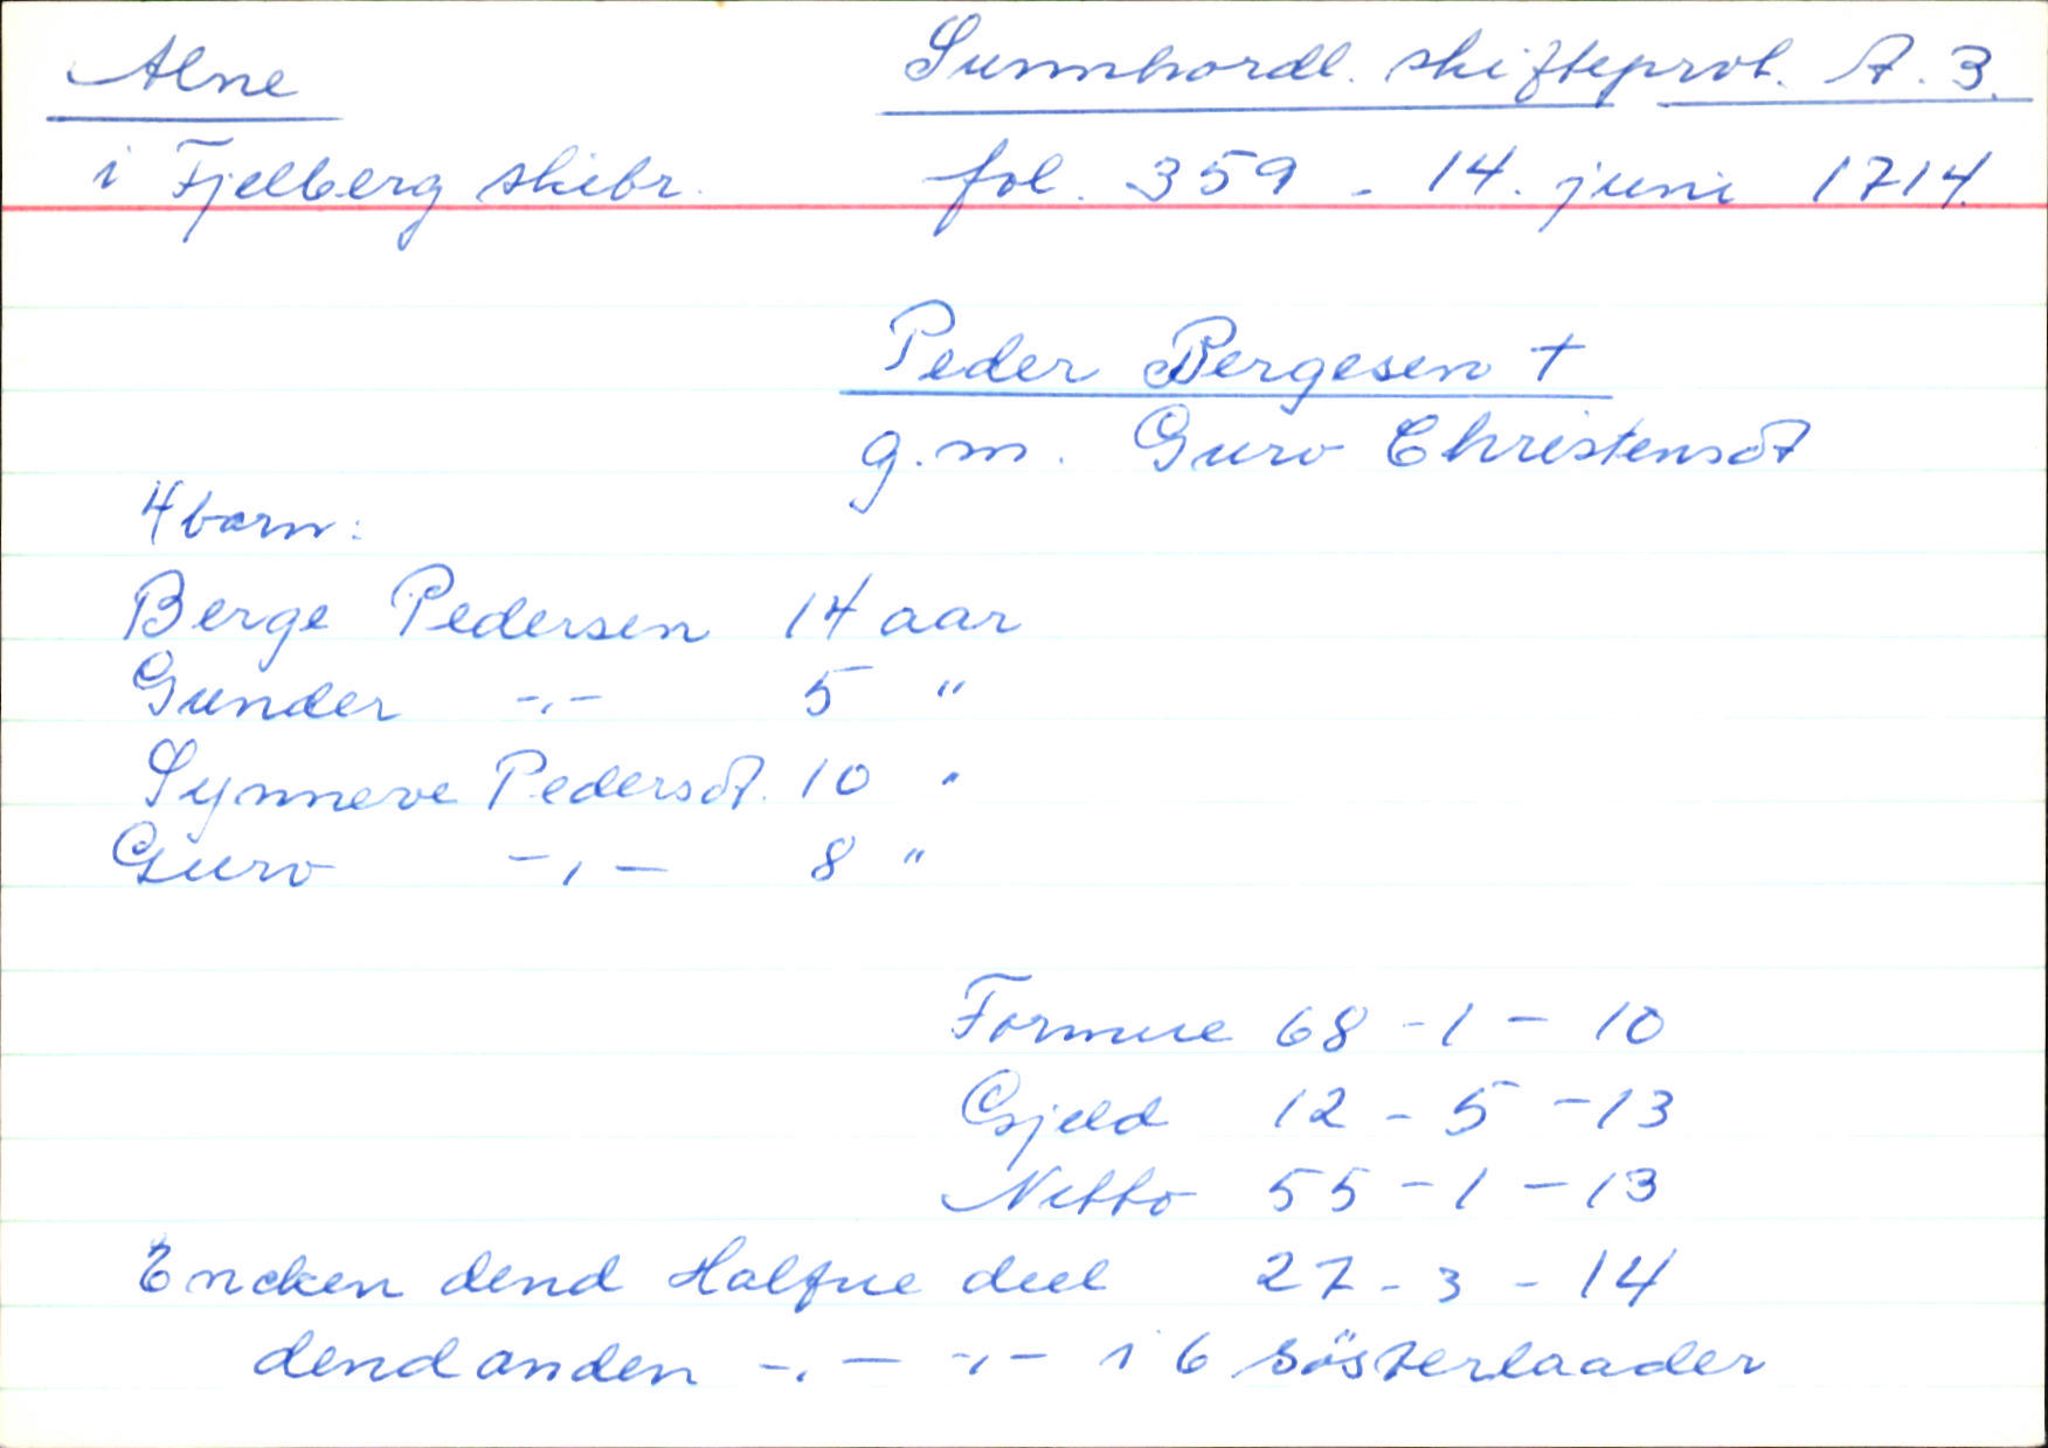 Alne Sunnhordl. skifteprot. A. 3.
i Fjelberg skibr. fol. 359 - 14. juni 1714.
Peder Bergesen †
g. m. Guro Christensdt
4 barn:
Berge Pedersen 14 aar
Gunder -,,- 5 "
Synneve Pedersdt. 10 "
Guro -,,- 8 "
Formue 68 - 1 - 10
Gjeld 12 - 5 - 13
Netto 55 - 1 - 13
Encken dend Halfue deel 27 - 3 - 14
dend anden -,,- -,,- i 6 søsterlaader